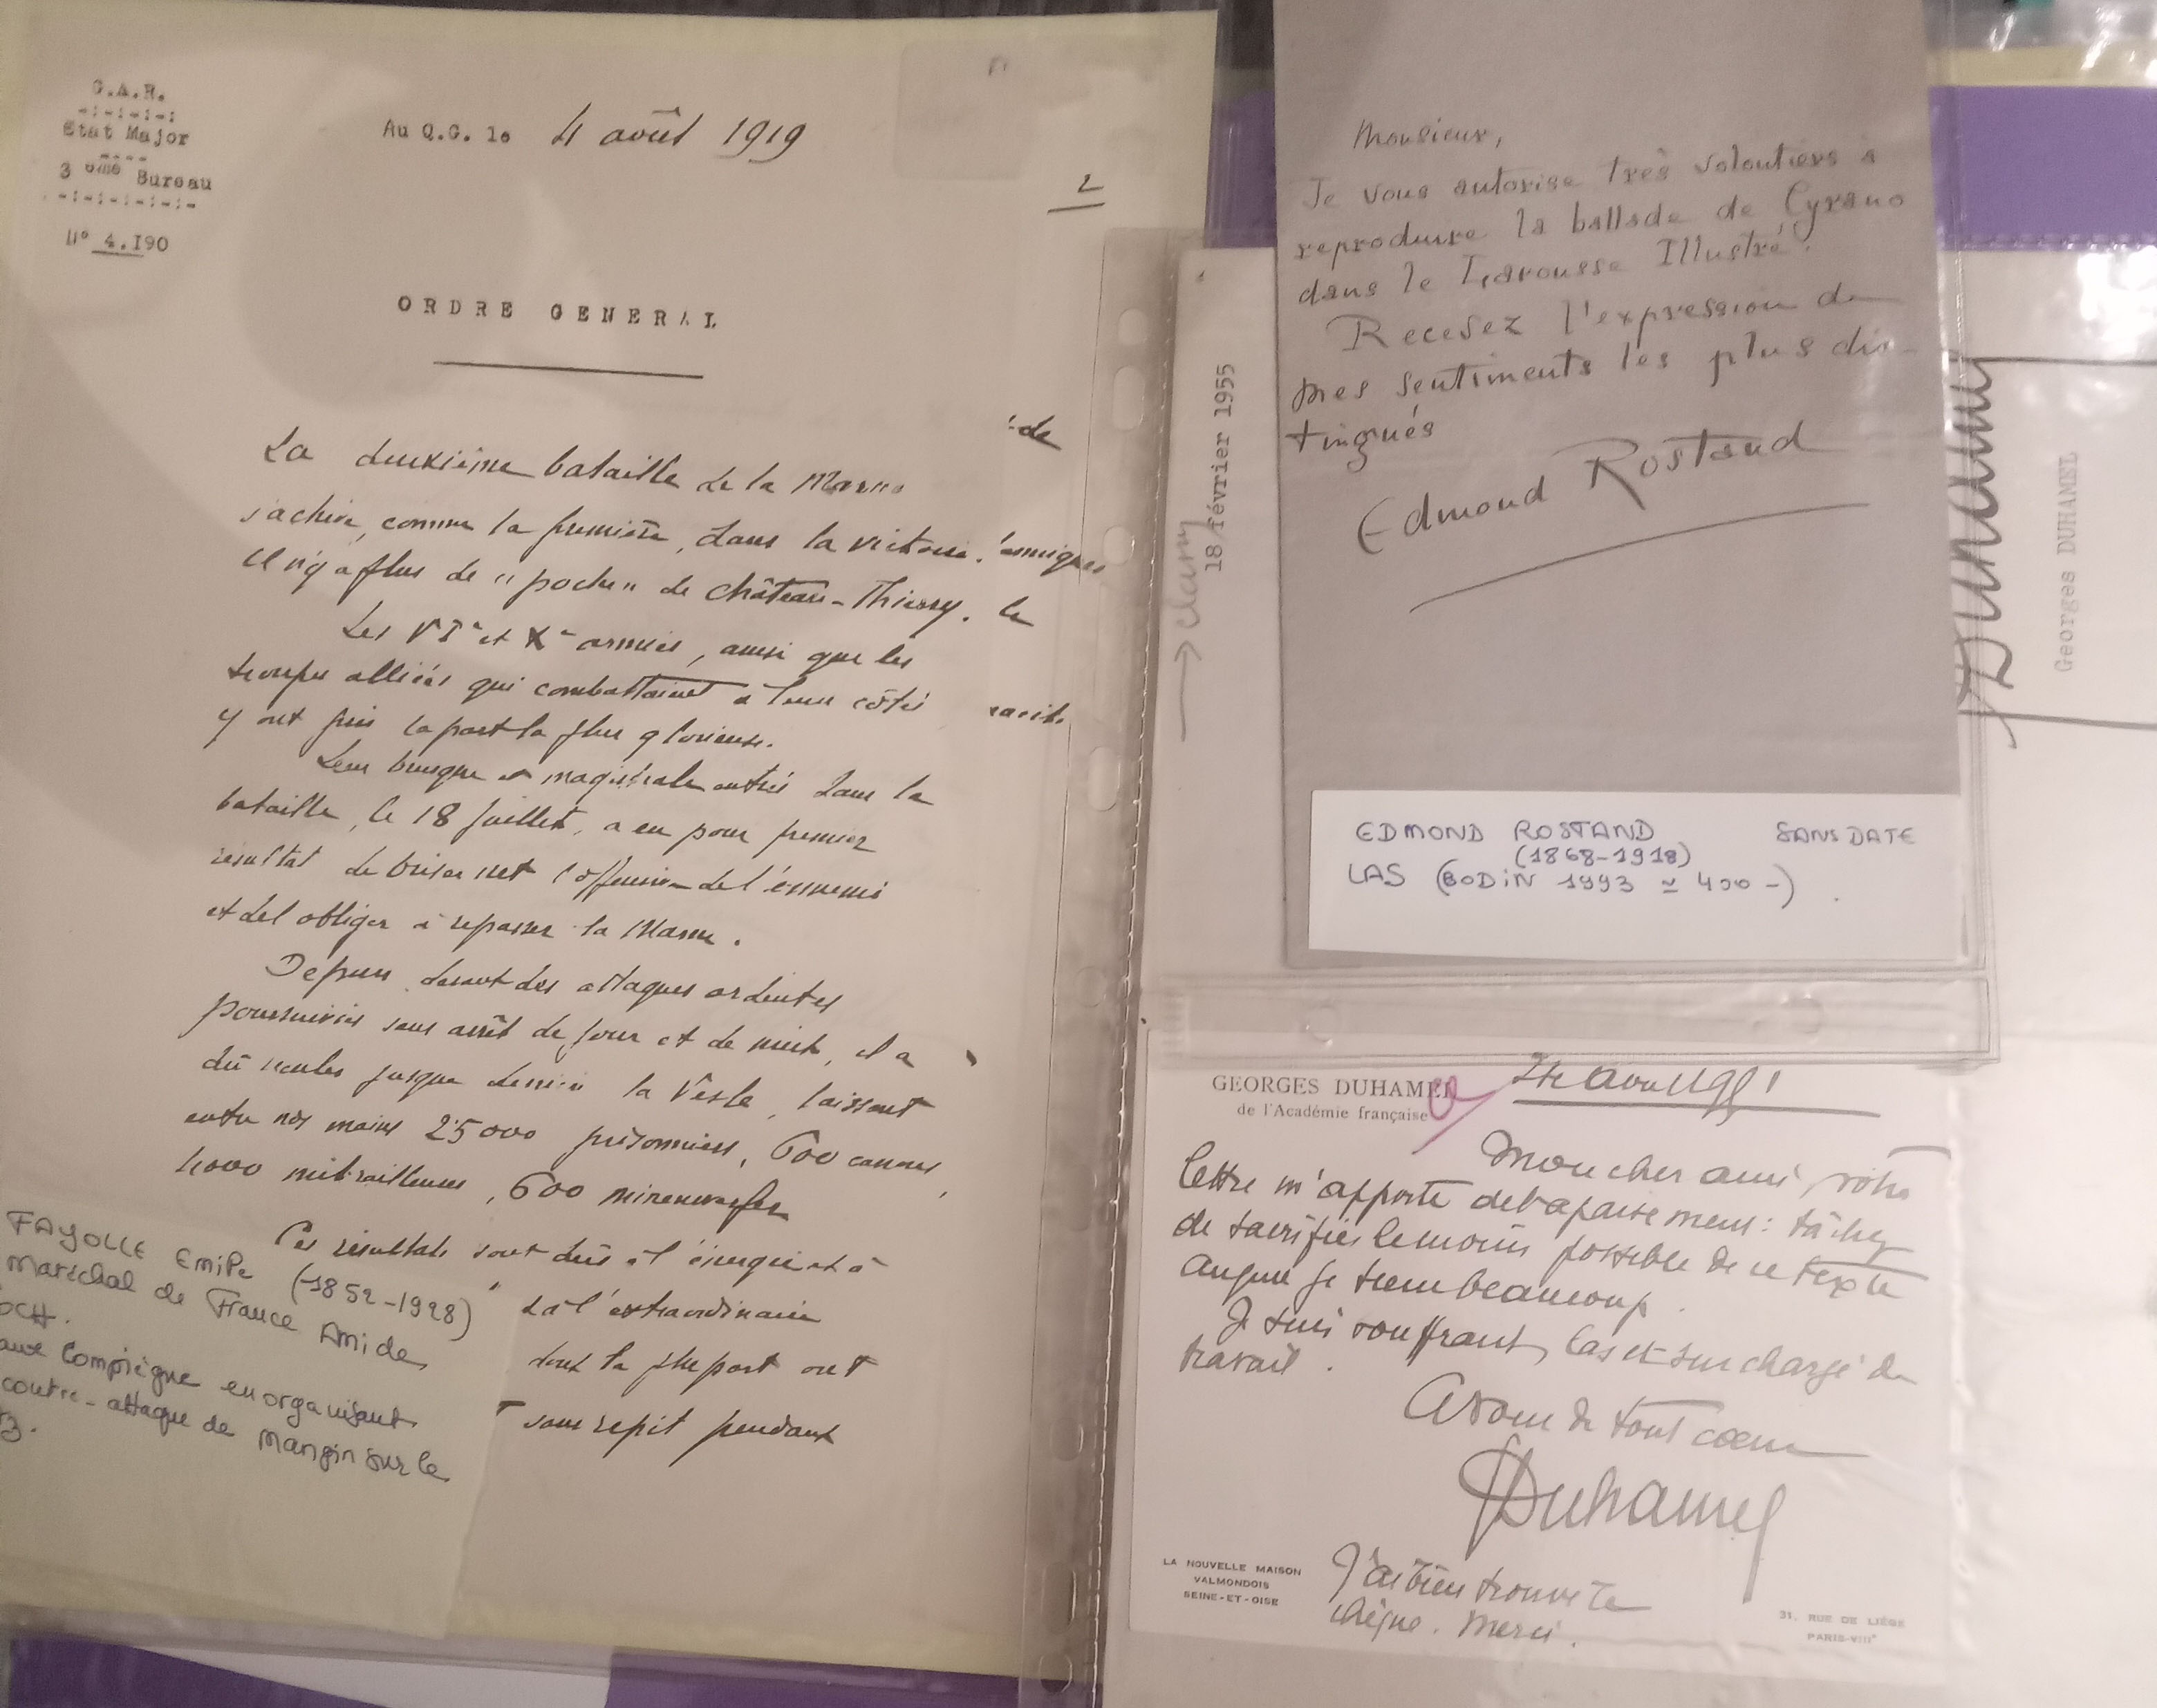 G.A.R.
-:-:-:-:-:
Etat Major
----
3 ème Bureau
-:-:-:-:-:-:-
N° 4.190
Au Q.G. le 4 août 1919
2
ORDRE GENERAL
La deuxième bataille de la Marne
s'achève, comme la première, dans la victoire.
Il n'y a plus de "poche" de Château-Thierry.
Les VIe et Xe armées, ainsi que les
troupes alliées qui combattaient à leur côté
y ont pris la part la plus glorieuse.
Leur brusque et magistrale entrée dans la
bataille, le 18 juillet, a eu pour premier
résultat de briser net l'offensive de l'ennemi
et de l'obliger à repasser la Marne.
Depuis, devant des attaques ardentes
poursuivies sans arrêt de jour et de nuit, il a
dû reculer jusque derrière la Vesle, laissant
entre nos mains 25000 prisonniers, 600 canons,
4000 mitrailleuses, 600 minenwerfer
Ces résultats sont dûs à l'énergie et à
à l'extraordinaire
dont la plupart ont
sans répit pendant
de
le
FAYOLLE Emile (1852-1928)
Maréchal de France Ami de
OCH.
Compiègne en organisant
contre-attaque de Mangin sur le
3.
18 février 1955
→ Clancy
Monsieur,
Je vous autorise très volontiers à
reproduire la ballade de Cyrano
dans le Larousse Illustré.
Recevez l'expression de
mes sentiments les plus dis-
tingués
Edmond Rostand
EDMOND ROSTAND SANS DATE
(1868-1918)
LAS (BODIN 1993 ≃ 400-)
Duhamel
Georges DUHAMEL
GEORGES DUHAMEL
de l'Académie française
Mon cher ami, votre
lettre m'apporte de l'apaisement: tâchez
de sacrifier le moins possible de ce texte
auquel je tiens beaucoup.
Je suis souffrant, las et surchargé de
travail.
A vous de tout coeur
Duhamel
J'ai bien trouvé le
chèque. Merci.
LA NOUVELLE MAISON
VALMONDOIS
SEINE-ET-OISE
31, RUE DE LIÈGE
PARIS-VIIIe